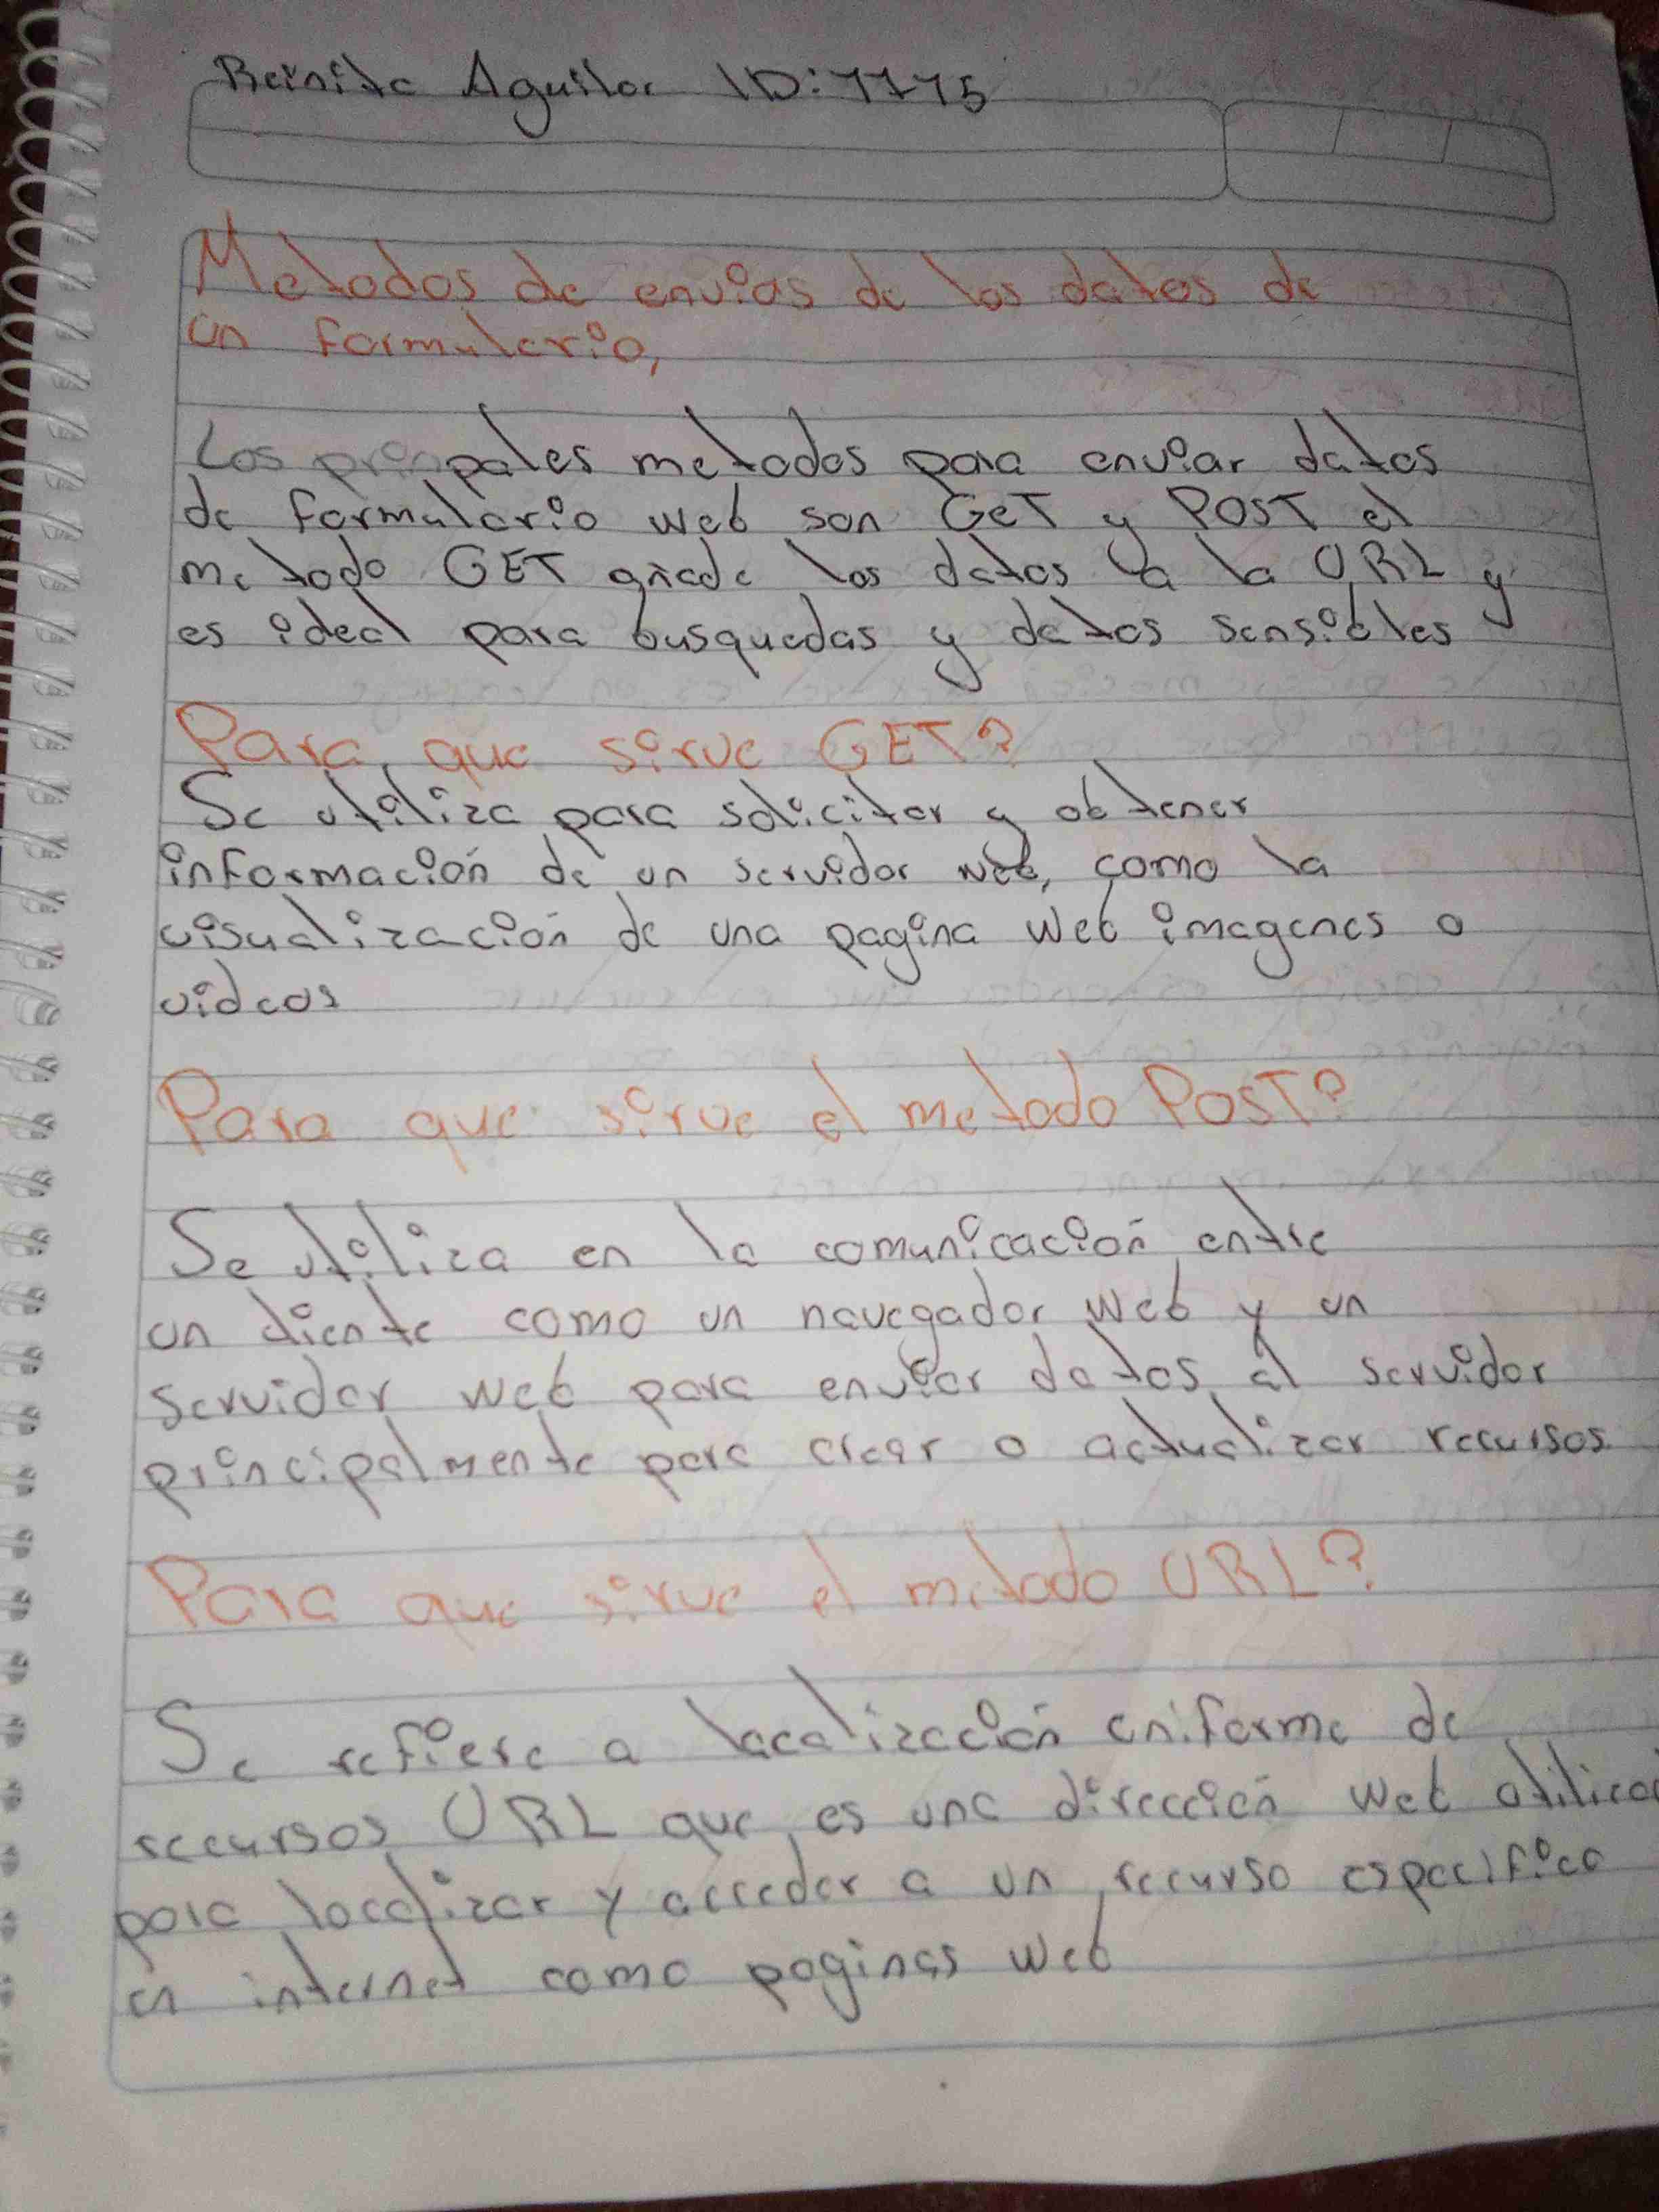 Reinita Aguilar ID: 7775
Metodos de envias de los datos de
un formulario,
Los prinpales metodos para enviar datos
de formulario web son GeT y POST el
metodo GET añade los datos a la URL y
es ideal para busquedas y datos sensibles
Para que sirve GET?
Se utiliza para solicitar y obtener
información de un servidor web, como la
visualización de una pagina web imagenes o
videos
Para que sirve el metodo POST?
Se utiliza en la comunicación entre
un cliente como un navegador web y un
servidor web para enviar datos al servidor
principalmente para crear o actualizar recursos
Para que sirve el metodo URL?
Se refiere a localización uniforme de
recursos URL que es una dirección web
para localizar y acceder a un recurso especifico
en internet como paginas web